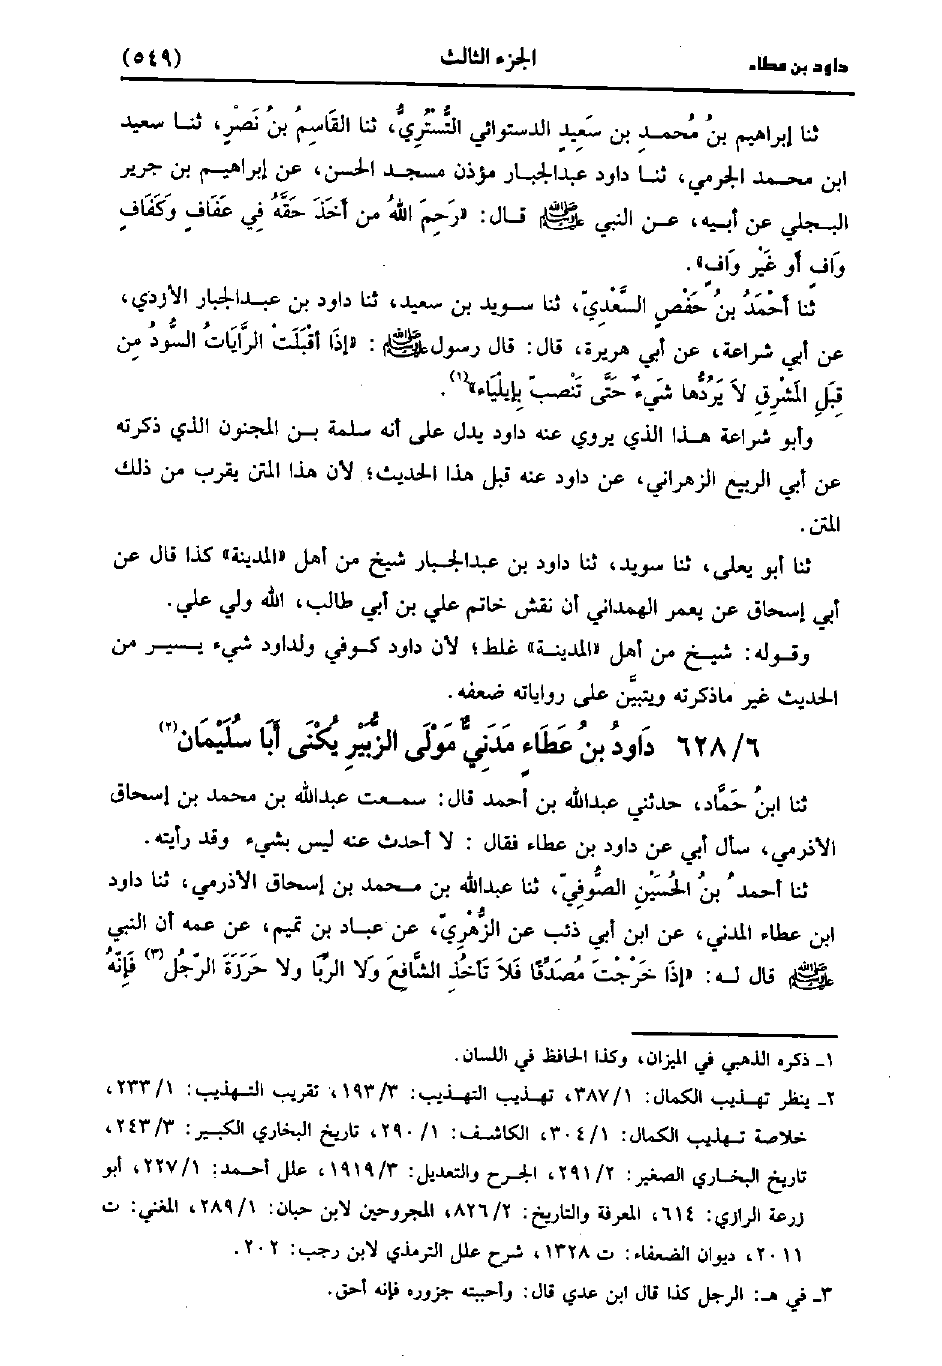 داود بن عطاء الجزء الثالث (٥٤٩)
ثنا إبراهيم بنُ مُحمد بن سَعِيدٍ الدستوائي التُّسْتُرِيُّ، ثنا القَاسِمُ بنُ نَصْرٍ، ثنا سعيد
ابن محمد الجرمي، ثنا داود عبدالجبار مؤذن مسجد الحسن، عن إبراهيم بن جرير
البجلي عن أبيه، عن النبي ﷺ قال: «رَحِمَ اللهُ من أَخَذَ حَقَّهُ فِي عَفَافٍ وَكَفَافٍ
وَافٍ أو غَيْرِ وَافٍ».
ثنا أَحْمَدُ بنُ حَفْصٍ السَّعْدِيّ، ثنا سويد بن سعيد، ثنا داود بن عبدالجبار الأزدي،
عن أبي شراعة، عن أبي هريرة، قال: قال رسول ﷺ : «إِذَا أَقْبَلَتْ الرَّايَاتُ السُّودُ مِن
قِبَلِ المَشْرِقِ لاَ يَرُدُّها شَيءٌ حَتَّى تَنْصبَ بِإيلْيَاء»(١).
وأبو شراعة هذا الذي يروي عنه داود يدل على أنه سلمة بن المجنون الذي ذكرته
عن أبي الربيع الزهراني، عن داود عنه قبل هذا الحديث؛ لأن هذا المتن يقرب من ذلك
المتن.
ثنا أبو يعلى، ثنا سويد، ثنا داود بن عبدالجبار شيخ من أهل «المدينة» كذا قال عن
أبي إسحاق عن يعمر الهمداني أن نقش خاتم علي بن أبي طالب، الله ولي علي.
وقوله: شيخ من أهل «المدينة» غلط؛ لأن داود كوفي ولداود شيء يسير من
الحديث غير ماذكرته ويتبيَّن على رواياته ضعفه.
٦/ ٦٢٨ دَاودُ بنُ عَطَاءٍ مَدَنِيٌّ مَوْلَى الزُّبَيْرِ يُكْنَى أَبَا سُلَيْمَان(٢)
ثنا ابنُ حَمَّاد، حدثني عبدالله بن أحمد قال: سمعت عبدالله بن محمد بن إسحاق
الأذرمي، سأل أبي عن داود بن عطاء فقال : لا أحدث عنه ليس بشيء وقد رأيته.
ثنا أحمدُ بنُ الحُسَيْنِ الصُّوفِيّ، ثنا عبدالله بن محمد بن إسحاق الأذرمي، ثنا داود
ابن عطاء المدني، عن ابن أبي ذئب عن الزُّهْرِيّ، عن عباد بن تميم، عن عمه أن النبي
ﷺ قال له: «إِذَا خَرَجْتَ مُصَدِّقًا فَلاَ تَأْخُذِ الشَّافِعَ وَلاَ الرِّبَّا ولا حَرَزَةَ الرَّجُلِ(٣) فَإِنَّهُ
١ـ ذكره الذهبي في الميزان، وكذا الحافظ في اللسان.
٢ـ ينظر تهذيب الكمال: ٣٨٧/١، تهذيب التهذيب: ١٩٣/٣، تقريب التهذيب: ٢٣٣/١،
خلاصة تهذيب الكمال: ٣٠٤/١، الكاشف: ٢٩٠/١، تاريخ البخاري الكبير: ٢٤٣/٣،
تاريخ البخاري الصغير: ٢٩١/٢، الجرح والتعديل: ١٩١٩/٣، علل أحمد: ٢٢٧/١، أبو
زرعة الرازي: ٦١٤، المعرفة والتاريخ: ٨٢٦/٢، المجروحين لابن حبان: ٢٨٩/١، المغني: ت
٢٠١١، ديوان الضعفاء: ت ١٣٢٨، شرح علل الترمذي لابن رجب: ٢٠٢.
٣ـ في هـ: الرجل كذا قال ابن عدي قال: وأحببته جزوره فإنه أحق.